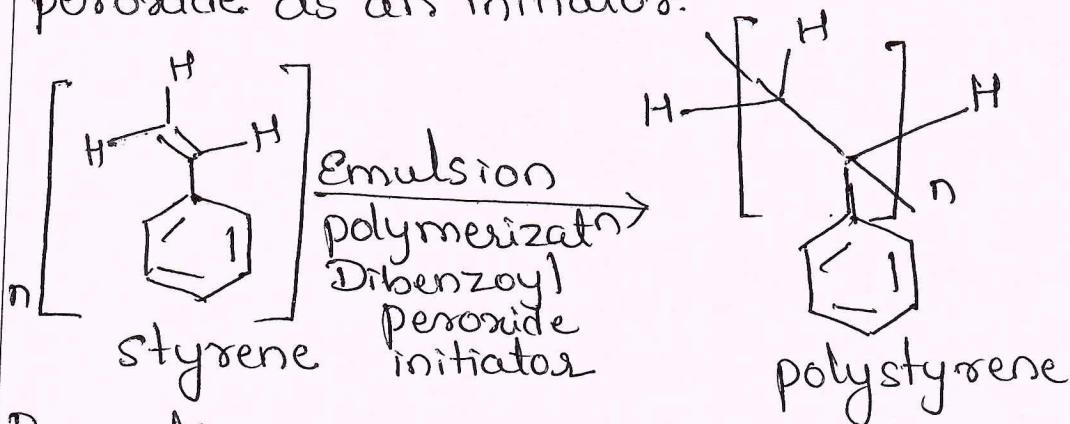 peroxide as an initiator.
H
H
H
n
styrene
Emulsion
polymerizatn
Dibenzoyl
peroxide
initiator
H
H
H
n
polystyrene